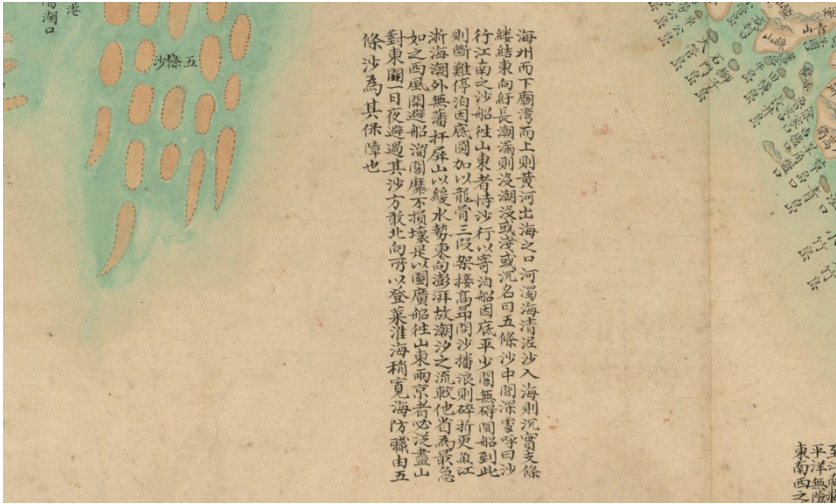 海州而下廟灣而上則黃河出海之口河濁海清泥沙入海則沉實支條
縷結東向紆長潮滿則沒潮沒或淺或沉名曰五條沙中間深處呼曰沙
行江南之沙船往山東者恃沙行以寄泊船因底平少閣無碍閩船到此
則斷難停泊因底圓加以龍骨三段架接高昂閣沙播浪則碎折更兼江
浙海潮外無藩扞屏山以緩水勢東向澎湃故潮汐之流較他省為最急
如之西風開避船溜閣靡不損壞是以閩廣船往山東兩京者必從盡山
對東開一日夜避過其沙方敢北向所以登萊淮海稍寬海防職由五
條沙為其保障也
五條沙
湖口
港
青山
大門島
竹島
青島
平洋無
東南西之